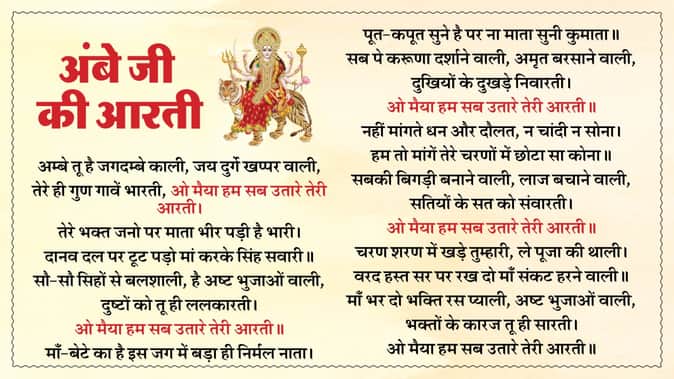 अंबे जी
की आरती
अम्बे तू है जगदम्बे काली, जय दुर्गे खप्पर वाली,
तेरे ही गुण गावें भारती, ओ मैया हम सब उतारे तेरी
आरती।
तेरे भक्त जनो पर माता भीर पड़ी है भारी।
दानव दल पर टूट पड़ो मां करके सिंह सवारी॥
सौ-सौ सिहों से बलशाली, है अष्ट भुजाओं वाली,
दुष्टों को तू ही ललकारती।
ओ मैया हम सब उतारे तेरी आरती॥
माँ-बेटे का है इस जग में बड़ा ही निर्मल नाता।
पूत-कपूत सुने है पर ना माता सुनी कुमाता॥
सब पे करूणा दर्शाने वाली, अमृत बरसाने वाली,
दुखियों के दुखड़े निवारती।
ओ मैया हम सब उतारे तेरी आरती॥
नहीं मांगते धन और दौलत, न चांदी न सोना।
हम तो मांगें तेरे चरणों में छोटा सा कोना॥
सबकी बिगड़ी बनाने वाली, लाज बचाने वाली,
सतियों के सत को संवारती।
ओ मैया हम सब उतारे तेरी आरती॥
चरण शरण में खड़े तुम्हारी, ले पूजा की थाली।
वरद हस्त सर पर रख दो माँ संकट हरने वाली॥
माँ भर दो भक्ति रस प्याली, अष्ट भुजाओं वाली,
भक्तों के कारज तू ही सारती।
ओ मैया हम सब उतारे तेरी आरती॥